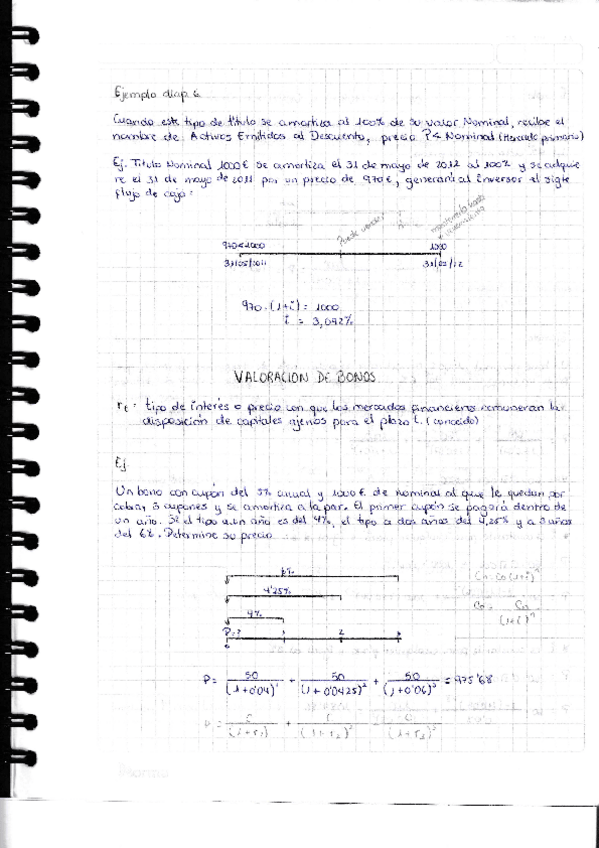 Ejemplo diap. 6
Cuando este tipo de título se amortiza al 100% de su valor Nominal, recibe el
nombre de Activos Emitidos al Descuento, precio P< Nominal (Mercado primario)
Ej. Título Nominal 1000€ se amortiza el 31 de mayo de 2012 al 100% y se adquie
re el 31 de mayo de 2011 por un precio de 970€, generará al inversor el sigte
flujo de caja:
Puede vender
970<1000
1000
31/05/2011
31/05/12
970·(1+i) = 1000
i = 3,092%
VALORACION DE BONOS
rt = tipo de interés o precio con que los mercados financieros remuneran la
disposición de capitales ajenos para el plazo t. (conocido)
Ej
Un bono con cupón del 5% anual y 1000€ de nominal al que le quedan por
cobrar 3 cupones y se amortiza a la par. El primer cupón se pagará dentro de
un año. Si el tipo a un año es del 4%, el tipo a dos años del 4,25% y a 3 años
del 6%. Determine su precio
6%
4'25%
4%
P=?
0 1 2 3
P= 50/(1+0'04)¹ + 50/(1+0'0425)² + 50/(1+0'06)³ = 975'68